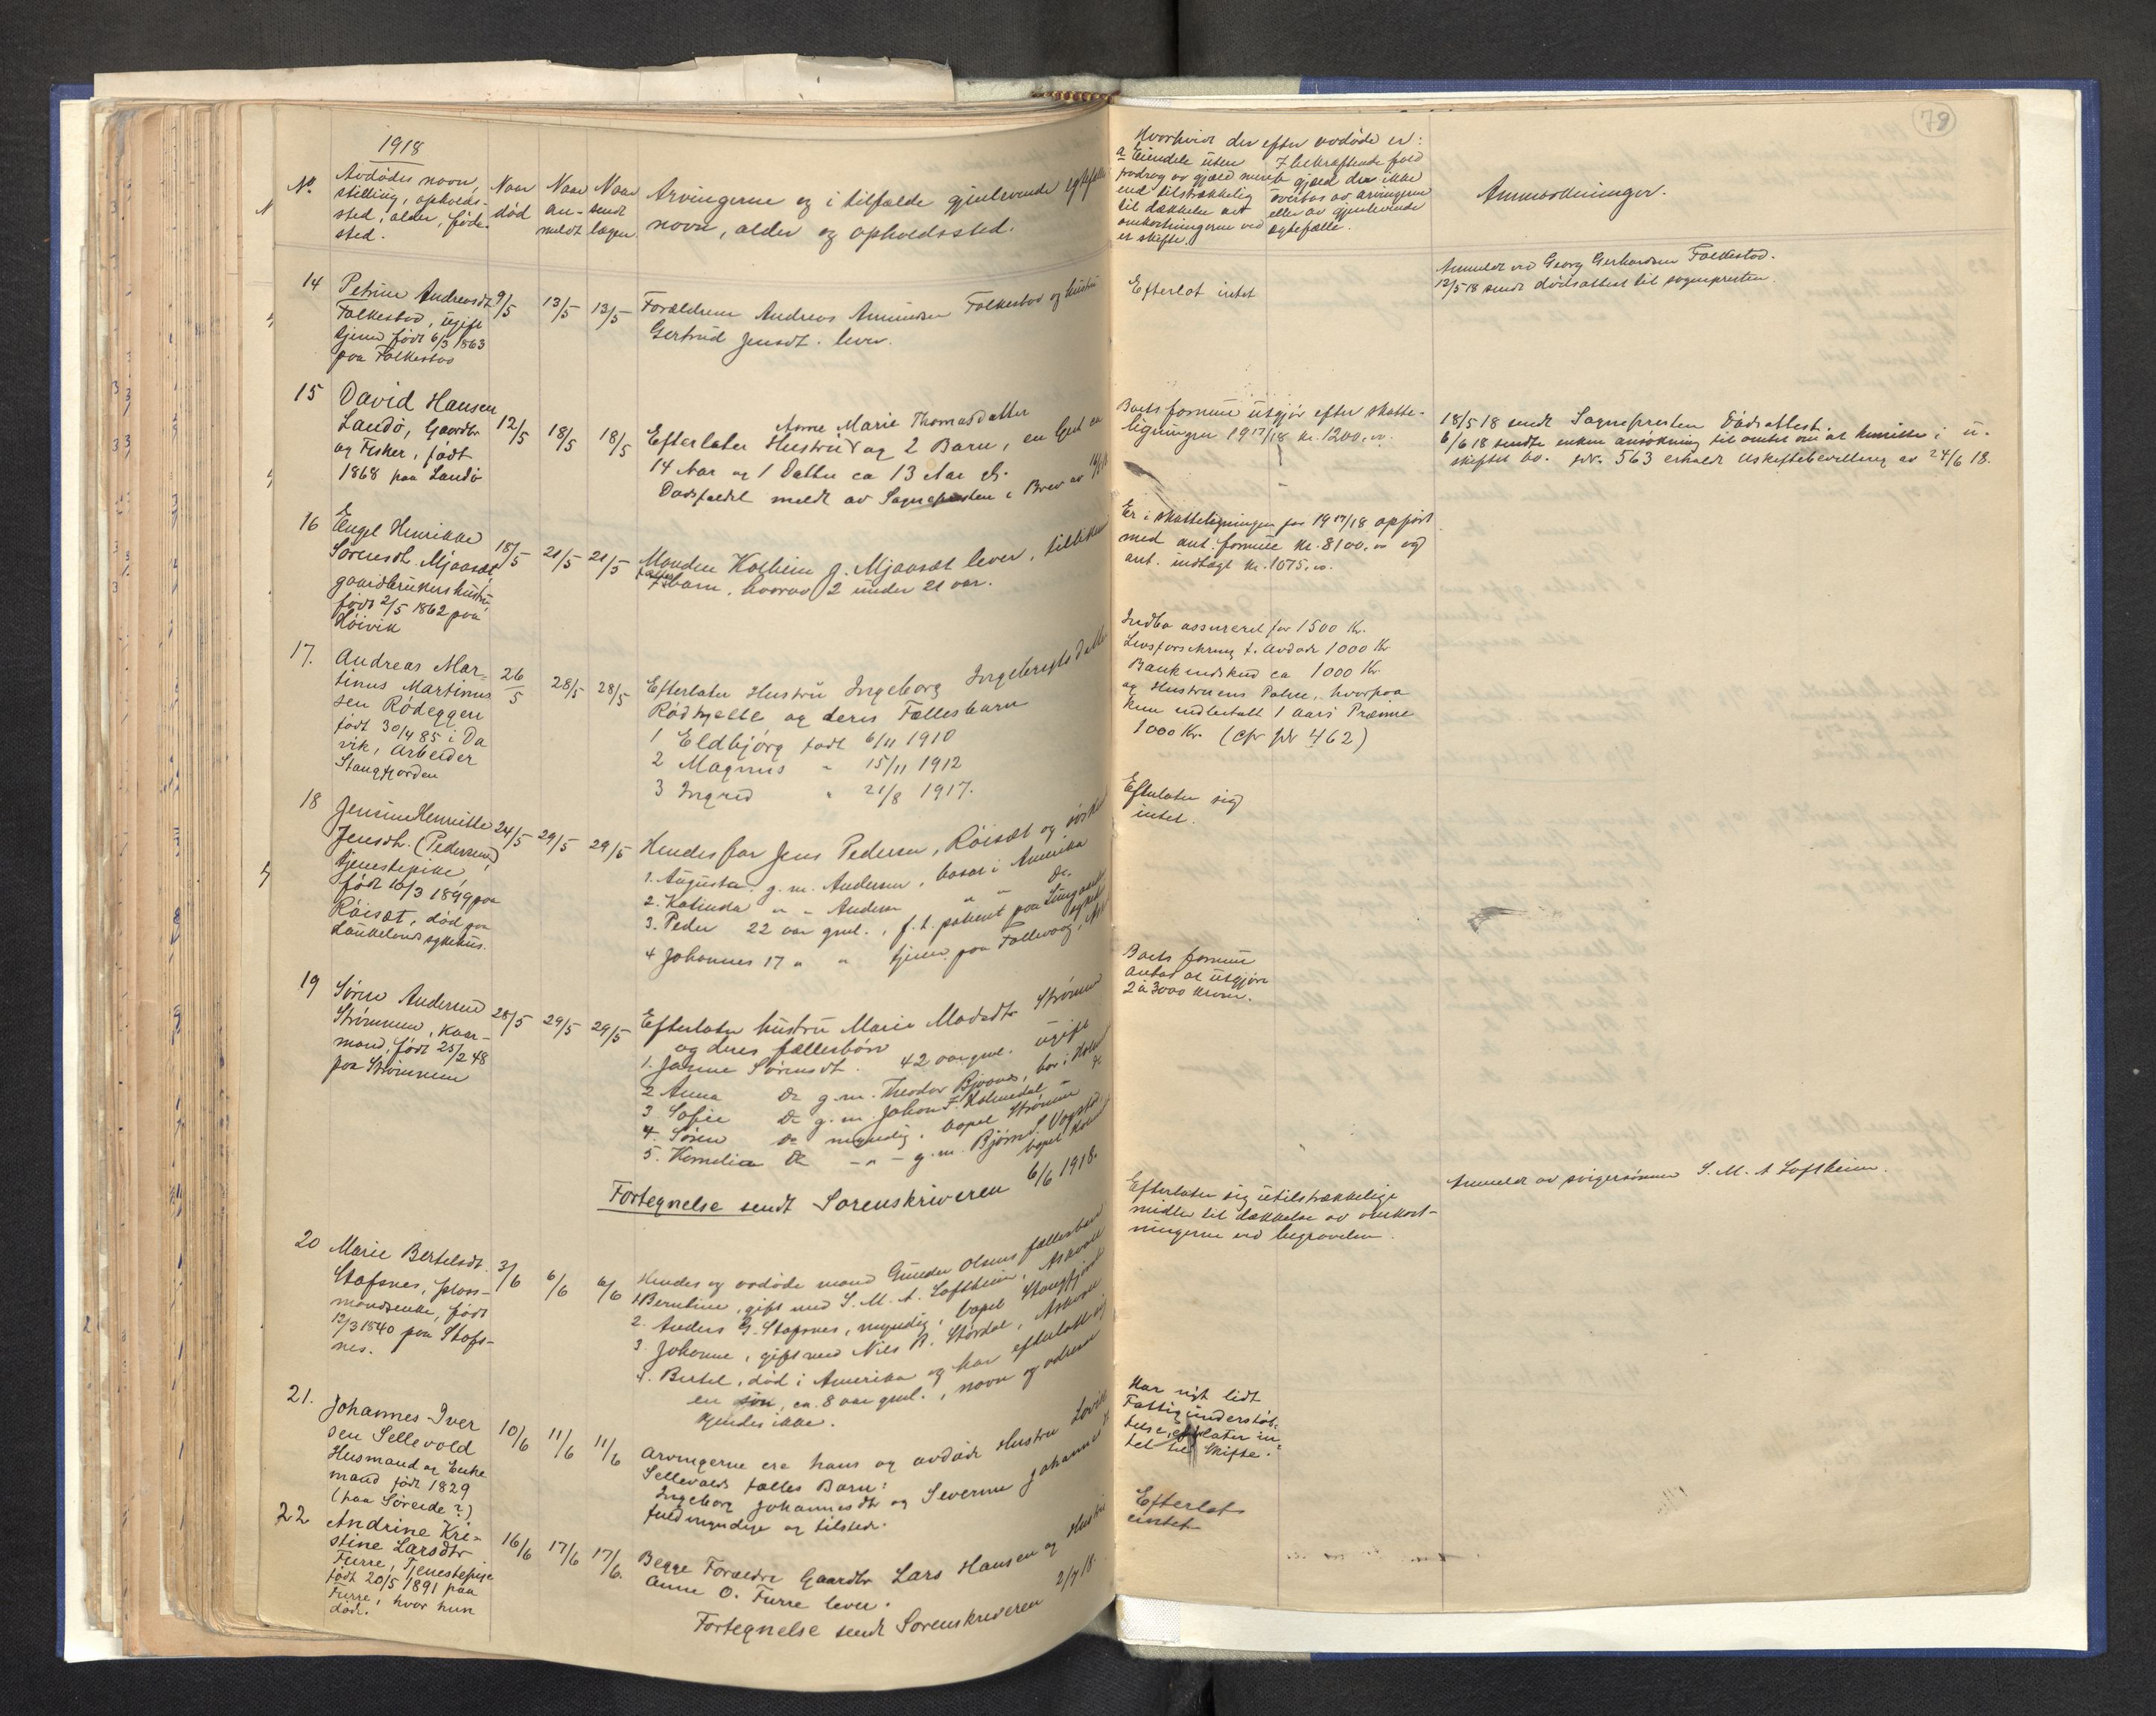 79
1918
No.
Avdødes navn,
stilling, opholds-
sted, alder, føde-
sted.
Naar
død
Naar
an-
meldt
Naar
sendt
Arvingerne og i tilfælde gjenlevende
navn, alder og opholdssted.
Hvorhvidt der efter avdøde er:
a Eiendele uten
fradrag av gjæld mere
end tilstrækkelig
til dækkelse av
omkostningerne ved
et skifte.
gjæld der ikke
overtas av arvingerne
eller av gjenlevende
egtefælle.
Anmerkninger.
14
Petrine Andreasdt.
Falkestad, ugift
tjener født 6/3 1863
paa Falkestad
9/5
13/5
13/5
Forældrene Andreas Amundsen Falkestad og hustru
Gertrud Jensdt. lever.
Efterlot intet
Anmeldt ved Georg Gerhardsen Falkestad.
13/5 18 sendt dødsattest til sognepresten.
15
David Hansen
Landø, Gaardbr
og Fisker, født
1868 paa Landø
12/5
18/5
18/5
Anne Marie Thomasdatter
Efterlater Hustru og 2 Barn, en Gut ca
14 Aar og 1 Datter ca 13 Aar gl.
Dødsfaldet meldt av Sognepresten i Brev av
Boets formue utgjør efter skatte-
ligningen 1917/18 kr. 1200,00.
18/5 18 sendt Sognepresten Dødsattest.
6/6 18 sendte enken ansøkning til amtet om at hensitte i u-
skiftet bo. 563 erholdt Uskiftebevilling av 24/6 18.
16
Engel Henrikke
Sørensdt. Mjaaset,
gaardbrukerhustru,
født 2/5 1862 paa
Høivik
18/5
21/5
21/5
Manden Kolbein J. Mjaaset lever, tillikemed
7 fælles barn, hvorav 2 under 21 aar.
Er i skatteligningen for 1917/18 opført
med ant. formue kr. 8100,00 og
ant. indtægt kr. 1075,00.
17.
Andreas Mar-
tinus Martinus
sen Rødeggen
født 30/4 85 i Da
vik, Arbeider
Stangfjorden
26/5
28/5
28/5
Efterlater Hustru Ingeborg Ingebrigtsdatter
Rødhjelle og deres Fællesbarn
1 Eldbjørg født 6/11 1910
2 Magnus " 15/11 1912
3 Ingrid " 21/8 1917.
Indbo assureret for 1500 Kr.
Livsforsikring f. Avdøde 1000 Kr
Bankindskud ca 1000 Kr.
og Hustruens Police, hvorpaa
kun indbetalt 1 aars Præmie
1000 Kr. (cfr 462)
18
Jensine Henriette
Jensdt. (Pedersen)
tjenestepike,
født 10/3 1899 paa
Røiset, død paa
Haukelands sykehus.
24/5
29/5
29/5
Hendes far Jens Pedersen, Røiset og søsken
1. Augusta g. m. Andersen, bosat i Amerika
2. Katinda " " Andersen " Do.
3. Peder 22 aar gml., f. t. patient paa
4 Johannes 17 " " tjener paa
Efterlater sig
intet.
19
Søren Andersen
Strømmen, kaar-
mand, født 25/2 48
paa Strømmen
28/5
29/5
29/5
Efterlater hustru Marie Madsdt. Strømmen
og deres fællesbørn
1. Janne Sørensdt. 42 aar gml. ugift
2 Anna Do g. m. Theodor Bjaanes, bor i
3 Sofie Do g. m. Johan F. Holmedal "
4. Søren Do myndig, bopæl Strømmen
5. Kornelia Do - " - g. m. Bjørn S. Vagstad
bopæl
Fortegnelse sendt Sorenskriveren 6/6 1918.
Boets formue
antas at utgjøre
2 à 3000 kroner.
20
Marie Bertelsdt.
Stafsnes, plass-
mandsenke, født
12/3 1840 paa Stafs-
nes.
3/6
6/6
6/6
Hendes og avdøde mand Gunder Olsens fællesbarn
1 Berntine, gift med S. M. A. Loftheim, Askvoll
2. Anders G. Stafsnes, myndig, bopæl Stangfjord
3. Johanne, gift med Nils R. Stordal, Askvoll
4. Bertel, død i Amerika og har efterlatt sig
en søn, ca. 8 aar gml., navn og adresse
kjendes ikke.
Efterlater sig utilstrækkelige
midler til dækkelse av omkost-
ningerne ved begravelsen.
Anmeldt av svigersønnen S. M. A. Loftheim.
21.
Johannes Iver
sen Sellevold
Husmand og Enke
mand født 1829
(paa Søreide?)
10/6
11/6
11/6
Arvingerne ere hans og avdøde Hustru
Sellevolds fælles Barn:
Ingeborg Johannesdt og Severine Johannesdt
fuldmyndige og tilstede.
Har nyt lidt
Fattigunderstøt-
telse, efterlater in-
tet til Skifte.
22
Andrine Kri-
stine Larsdtr
Furre, Tjenestepige
født 20/5 1891 paa
Furre, hvor hun
døde.
16/6
17/6
17/6.
Begge Forældre Gaardbr Lars Hansen og Hustru
Anne O. Furre lever.
Fortegnelse sendt Sorenskriveren 2/7 18.
Efterlot
intet